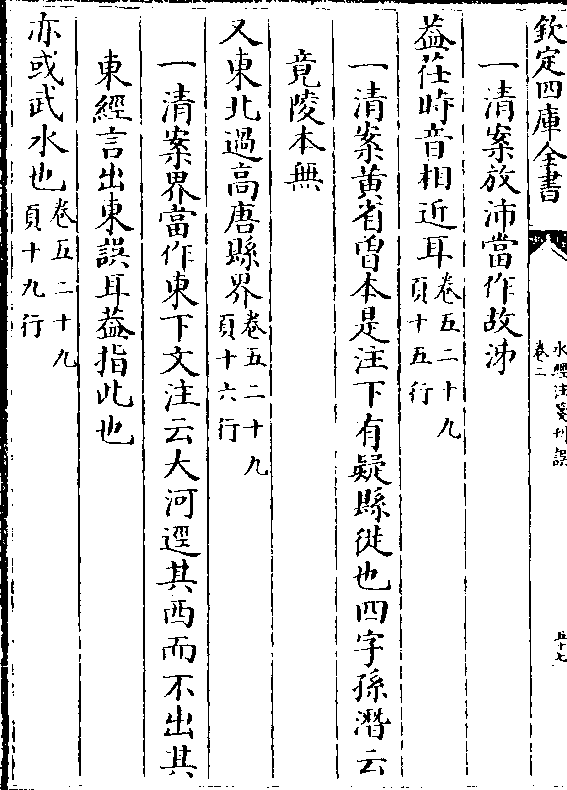 欽定四庫全書
水經注箋刋誤
卷二
五十七
一清案放沛當作故沛
葢茌時音相近耳卷五二十九
頁十五行
一清案黄省曽本是注下有疑縣徙也四字孫潛云
竟陵本無
又東北過高唐縣界卷五二十九
頁十六行
一清案界當作東下文注云大河逕其西而不出其
東經言出東誤耳葢指此也
亦或武水也卷五二十九
頁十九行